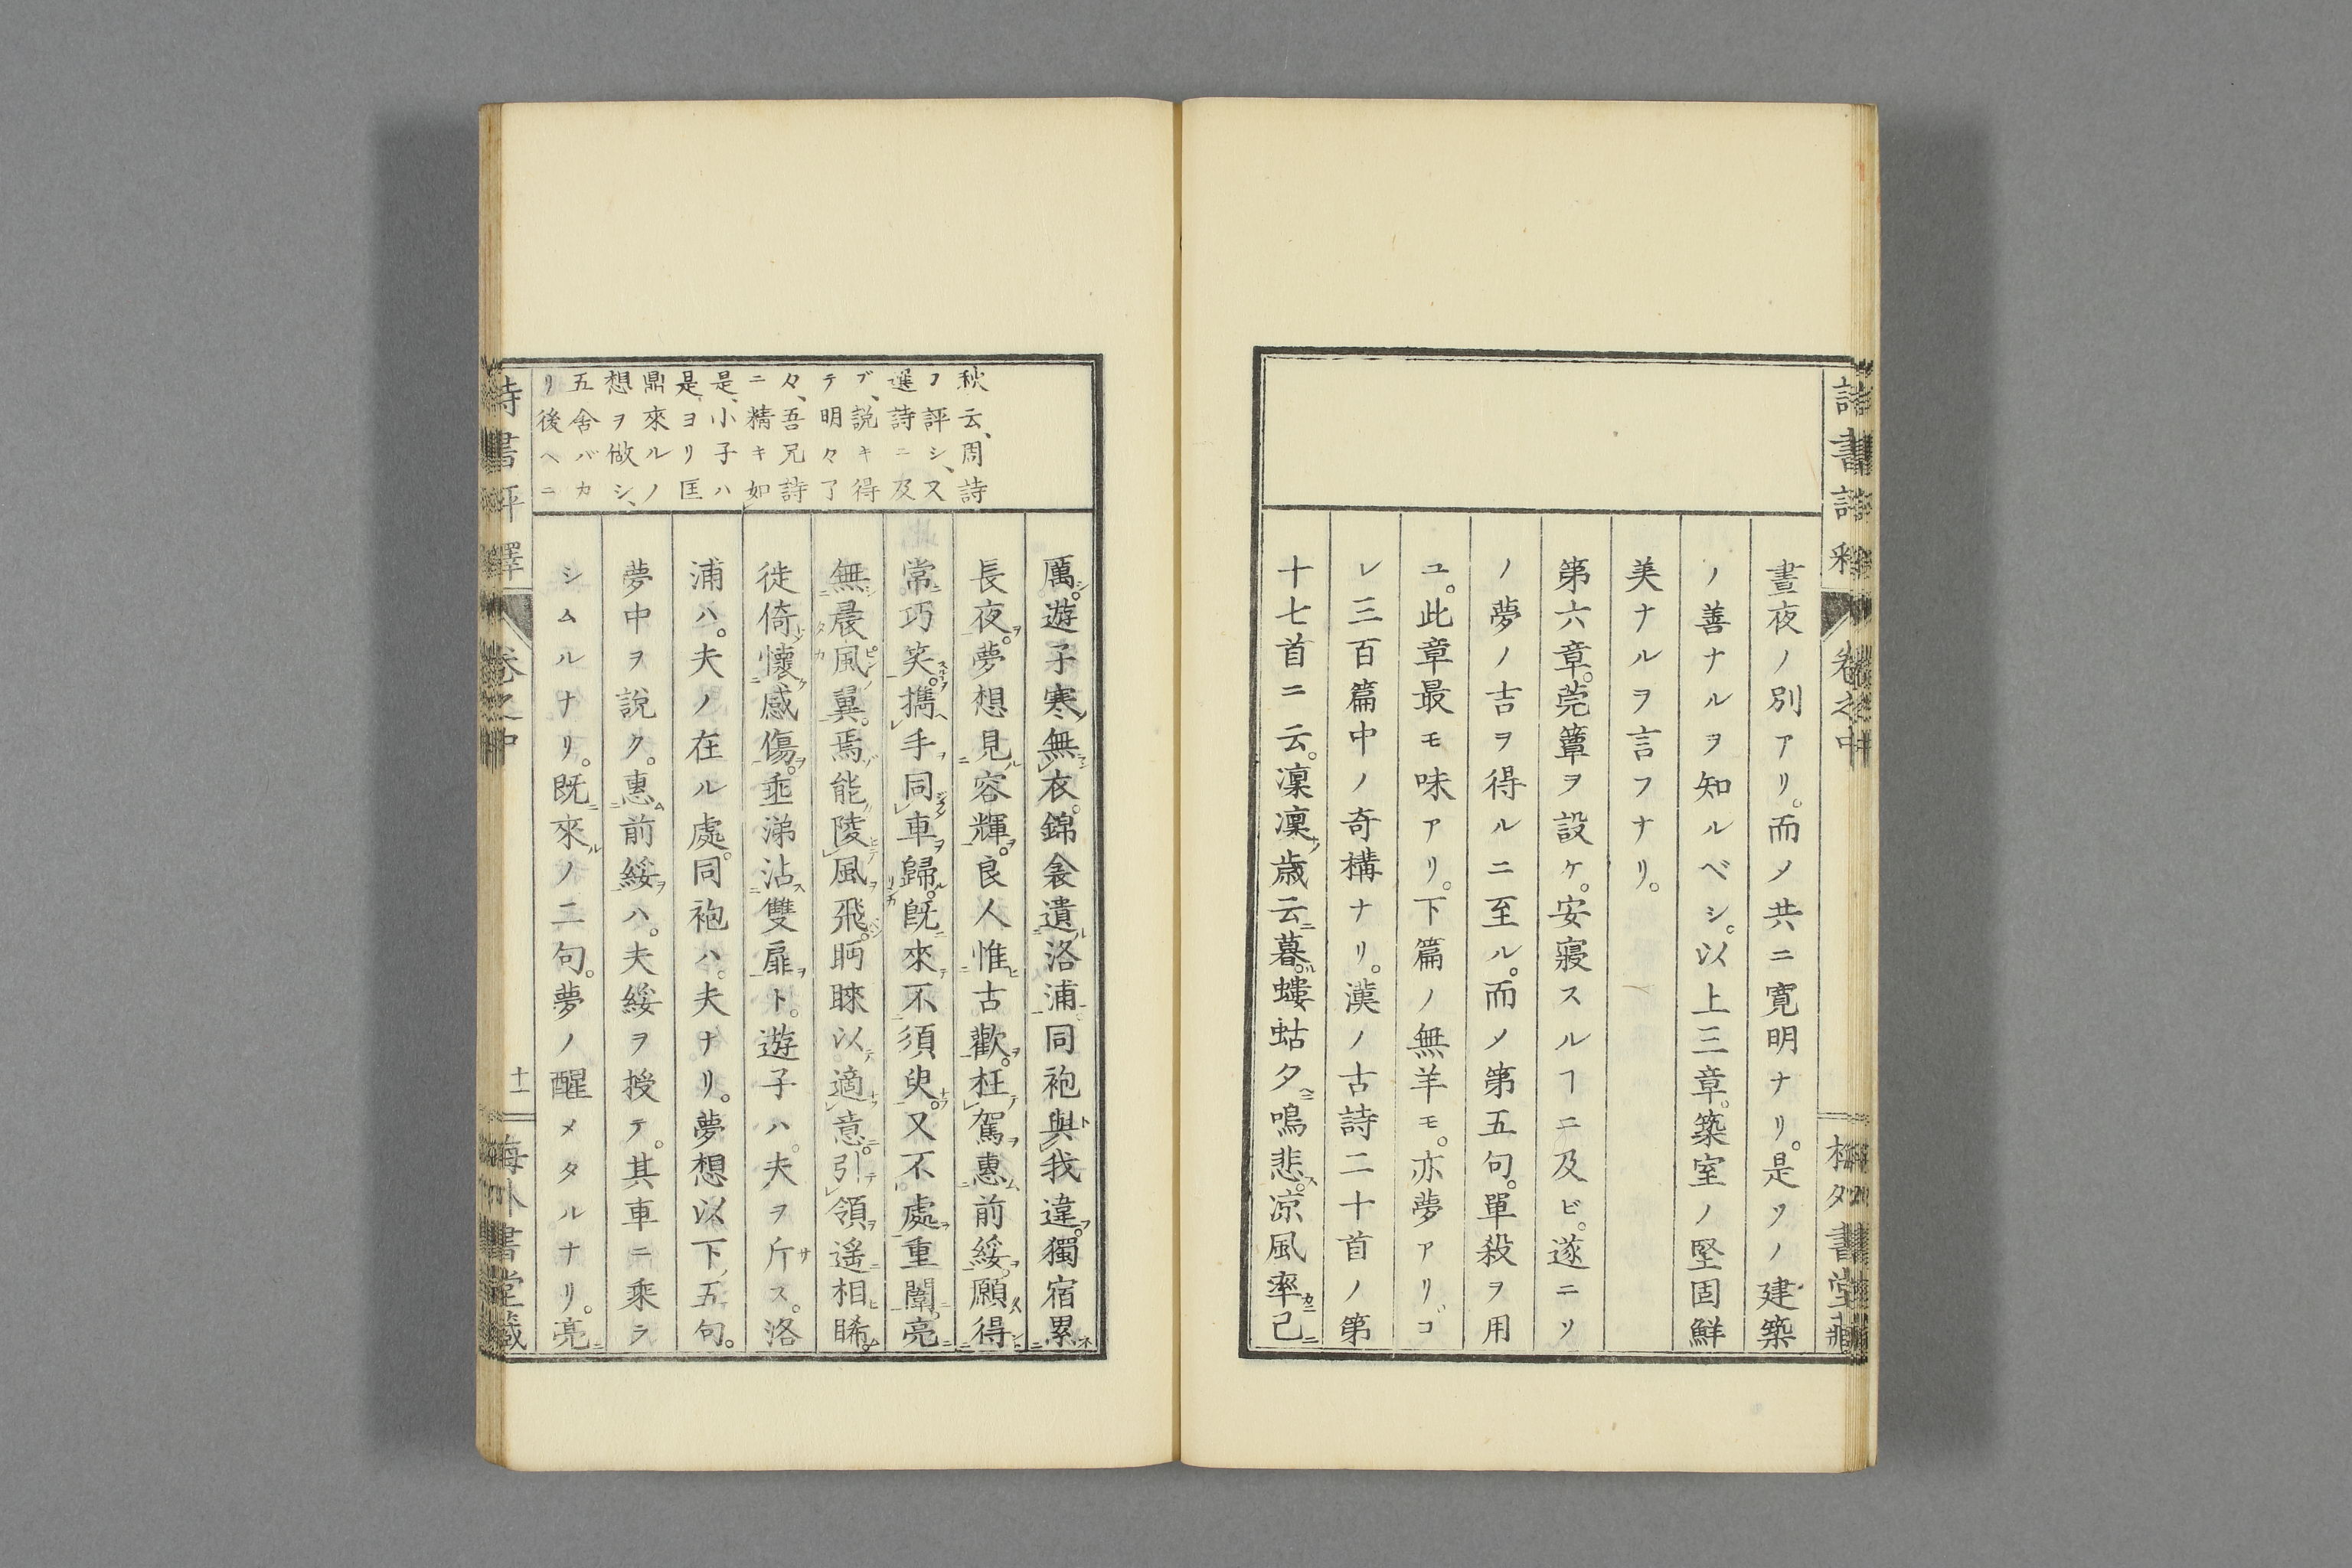 晝夜ノ別アリ。而〆共ニ寛明ナリ。是ソノ建築
ノ善ナルヲ知ルベシ。以上三章。築室ノ堅固鮮
美ナルヲ言フナリ。
第六章。莞簟ヲ設ケ。安寢スルヿニ及ビ。遂ニソ
ノ夢ノ吉ヲ得ルニ至ル。而〆第五句。單殺ヲ用
ユ。此章最モ味アリ。下篇ノ無羊モ。亦夢アリ。コ
レ三百篇中ノ奇構ナリ。漢ノ古詩二十首ノ第
十七首ニ云。凜凜歲云暮。螻蛄夕鳴悲。凉風率已
厲。遊子寒無衣。錦衾遺洛浦。同袍與我違。獨宿累
長夜。夢想見容輝。良人惟古歡。枉駕惠前綏。願得
常巧笑。攜手同車歸。既來不須臾。又不處重闈。亮
無晨風翼。焉能陵風飛。眄睞以適意。引領遙相睎。
徙倚懷感傷。垂涕沾雙扉ト。遊子ハ。夫ヲ斥ス。洛
浦ハ。夫ノ在ル處。同袍ハ。夫ナリ。夢想以下、五句。
夢中ヲ說ク。惠前綏ハ。夫綏ヲ授テ。其車ニ乘ラ
シムルナリ。既來ノ二句。夢ノ醒メタルナリ。亮
秋云、周詩
ヲ評シ、又
選詩ニ及
ブ、說キ得
テ明々了
々、吾兄詩
ニ精キ如
是、小子ハ
是ヨリ匡
鼎來ルノ
想ヲ做シ、
五舍バカ
リ後ヘニ
詩書評釋
卷之中
十一
海外書堂藏